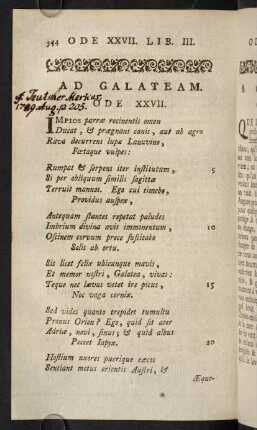 344 ODE XXVII. LIB. III.
AD GALATEAM.
cf. Teutscher Merkur
1789 Aug. p. 205.
ODE XXVII.
IMpios parræ recinentis omen
Ducat, & prægnans canis, aut ab agro
Rava decurrens lupa Lanuvino,
Fœtaque vulpes:
Rumpat & serpens iter institutum, 5
Si per obliquum similis sagittæ
Terruit mannos. Ego cui timebo,
Providus auspex,
Antequam stantes repetat paludes
Imbrium divina avis imminentum, 10
Oscinem corvum prece suscitabo
Solis ab ortu.
Sis licet felix ubicunque mavis,
Et memor nostri, Galatea, vivas:
Teque nec lævus vetet ire picus, 15
Nec vaga cornix.
Sed vides quanto trepidet tumultu
Pronus Orion? Ego, quid sit ater
Adriæ, novi, sinus; & quid albus
Peccet Iapyx. 20
Hostium uxores puerique cæcos
Sentiant motus orientis Austri, &
Æquo-